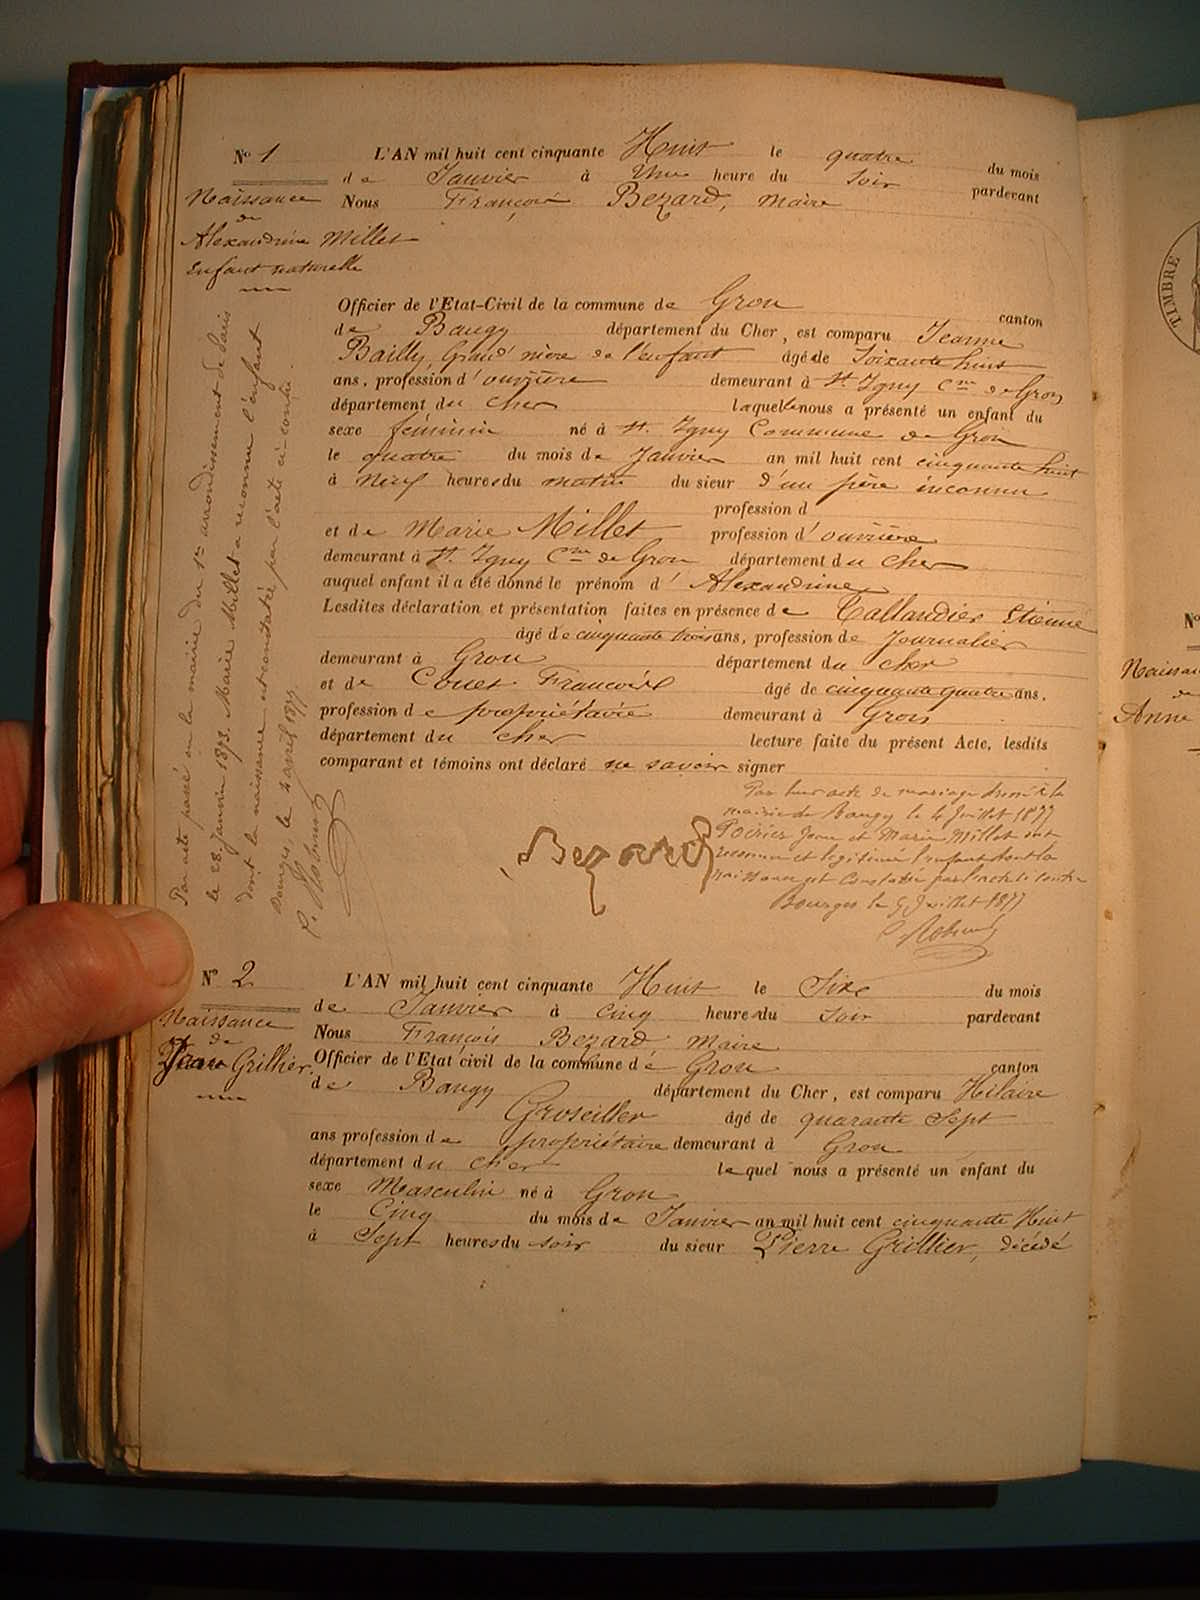 N° 1
L'AN mil huit cent cinquante Huit le quatre du mois
de Janvier à Une heure du Soir pardevant
Nous François Bezard, Maire
Naissance
de
Alexandrine Millet
enfant naturelle
Officier de l'Etat-Civil de la commune de Gron canton
de Baugy département du Cher, est comparu Jeanne
Bailly Grand' mère de l'enfant âgé de Soixante huit
ans, profession d'ouvrière demeurant à St. Igny Cne de Gron
département du Cher laquelle nous a présenté un enfant du
sexe féminin né à St. Igny Commune de Gron
le quatre du mois de Janvier an mil huit cent cinquante huit
à Neuf heures du matin du sieur d'un père inconnu
profession d
et de Marie Millet profession d'ouvrière
demeurant à St. Igny Cne de Gron département du Cher
auquel enfant il a été donné le prénom d' Alexandrine
Lesdites déclaration et présentation faites en présence de Tallandier Etienne
âgé de cinquante trois ans, profession de Journalier
demeurant à Gron département du Cher
et de Couet François âgé de cinquante quatre ans.
profession de propriétaire demeurant à Gron
département du Cher lecture faite du présent Acte, lesdits
comparant et témoins ont déclaré ne savoir signer
Bezard
Par acte passé en la mairie du 1er arrondissement de Paris
le 28 Janvier 1873. Marie Millet a reconnu l'enfant
dont la naissance est constatée par l'acte ci-contre.
Bourges, le 2 avril 1877
Par leur acte de mariage dressé à la
mairie de Baugy le 4 Juillet 1877
Poirier Jean et Marie Millet ont
reconnu et légitimé l'enfant dont la
naissance est Constatée par l'acte ci contre
Bourges le 5 Juillet 1877
N° 2
L'AN mil huit cent cinquante Huit le Six du mois
de Janvier à Cinq heures du Soir pardevant
Nous François Bezard Maire
Naissance
de
Jean Grillier.
Officier de l'Etat civil de la commune de Gron canton
de Baugy département du Cher, est comparu Hilaire
Groseiller âgé de quarante Sept
ans profession de propriétaire demeurant à Gron
département du Cher lequel nous a présenté un enfant du
sexe Masculin né à Gron
le Cinq du mois de Janvier an mil huit cent cinquante Huit
à Sept heures du soir du sieur Pierre Grillier, décédé
TIMBRE
N°
Anne